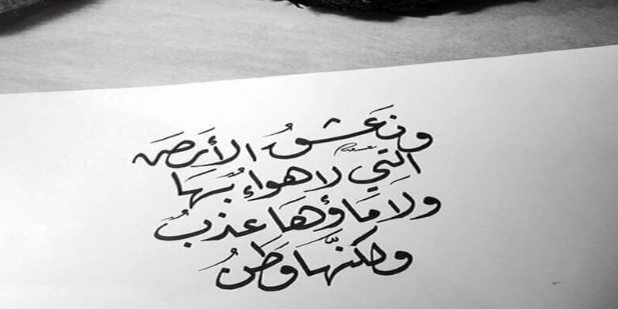 ونَعشقُ الأرضَ
التِي لا هواءُ بُها
ولَا مَاؤهَا عذبٌ
ولكنَّها وَطنُ